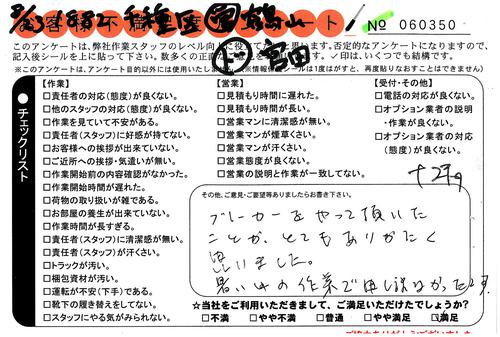 8/23 1882 千種区 鶴山
お客様不満度アンケート!
No 060350
宮田
このアンケートは、弊社作業スタッフのレベル向上に役立てたいと思います。否定的なアンケートになりますので、
記入後シールを上に貼って下さい。数多くの正直な意見をお待ちしております。✓印は、いくつでも結構です。
※このアンケートは、アンケート目的以外には使用いたしません。(※情報保護シールは1度はがすと、再度貼りなおすことはできません)
●チェックリスト
【作業】
□責任者の対応(態度)が良くない。
□他のスタッフの対応(態度)が良くない。
□作業を見ていて不安がある。
□責任者(スタッフ)に好感が持てない。
□お客様への挨拶が出来ていない。
□ご近所への挨拶・気遣いが無い。
□作業開始前の内容確認がなかった。
□作業開始時間が遅れた。
□荷物の取り扱いが雑である。
□お部屋の養生が出来ていない。
□作業時間が長すぎる。
□責任者(スタッフ)に清潔感が無い。
□責任者(スタッフ)が汗くさい。
□トラックが汚い。
□梱包資材が汚い。
□運転が安全(下手)である。
□靴下の履き替えをしてない。
□スタッフにやる気がみられない。
【営業】
□見積もり時間に遅れた。
□見積もり時間が長い。
□営業マンに清潔感が無い。
□営業マンが煙草くさい。
□営業マンが汗くさい。
□営業態度が良くない。
□営業の説明と作業が一致してない。
【受付・その他】
□電話の対応が良くない。
□オプション業者の説明
・作業が良くない。
□オプション業者の対応
(態度)が良くない。
その他、ご意見・ご要望等ありましたらお書き下さい。
ブレーカーをやって頂いた
ことが、とてもありがたく
思いました。
暑い中の作業で申し訳なかったです。
☆当社をご利用いただきまして、ご満足いただけたでしょうか?
□不満 □やや不満 □普通 □やや満足 □満足